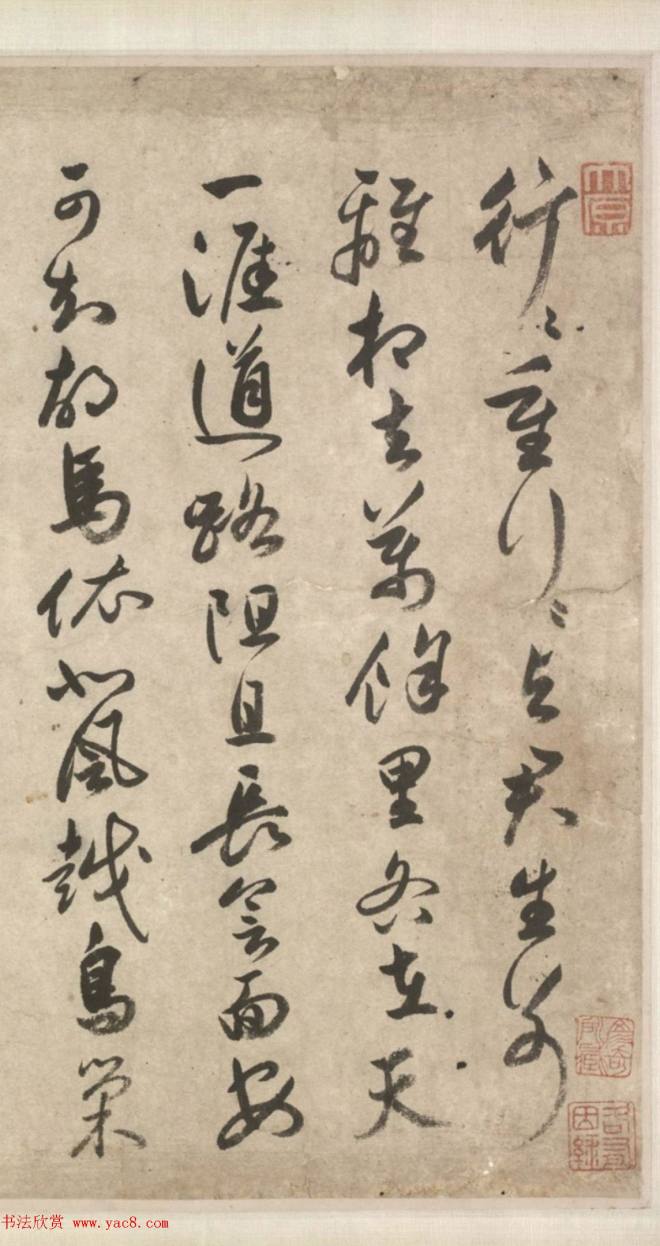 行〻重行〻与君生别
離相去萬餘里各在天
一涯道路阻且長會面安
可知胡馬依北風越鳥巢
书法欣赏 www.yac8.com